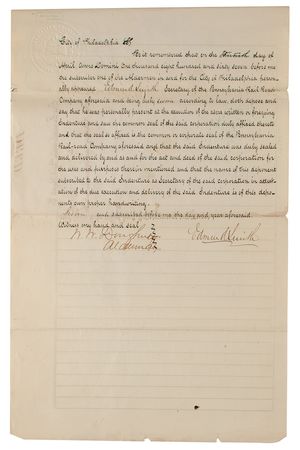 City of Philadelphia SS,
Be it remembered that on the day of
April Anno Domini One thousand eight hundred and sixty seven before me
the subscriber one of the Aldermen in and for the City of Philadelphia person
ally appeared Edmund Smith Secretary of the Pennsylvania Rail Road
Company aforesaid and being duly sworn according to law, doth depose and
say that he was personally present at the execution of the above written or foregoing
Indenture and saw the common seal of the said corporation duly affixed thereto
and that the seal so affixed is the common or corporate seal of the Pennsylvania
Rail-road Company aforesaid and that the said Indenture was duly sealed
and delivered by and as and for the act and deed of the said corporation for
the uses and purposes therein mentioned and that the name of this deponent
subscribed to the said Indenture as Secretary of the said corporation in attest-
ation of the due execution and delivery of the said Indenture is of this depo-
nents own proper handwriting.
Sworn and subscribed before me the day and year aforesaid
Witness my hand and seal
Edmund Smith
Alderman